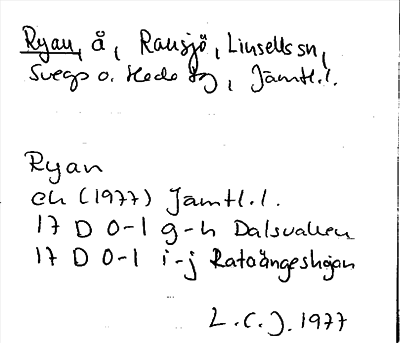 Ryan, å, Ransjö, Linsells sn,
Svegs o. Hede tg, Jämtl.l.
Ryan
ek (1977) Jämtl.l.
17 D 0-1 g-h Dalsvallen
17 D 0-1 i-j
L.C.J. 1977